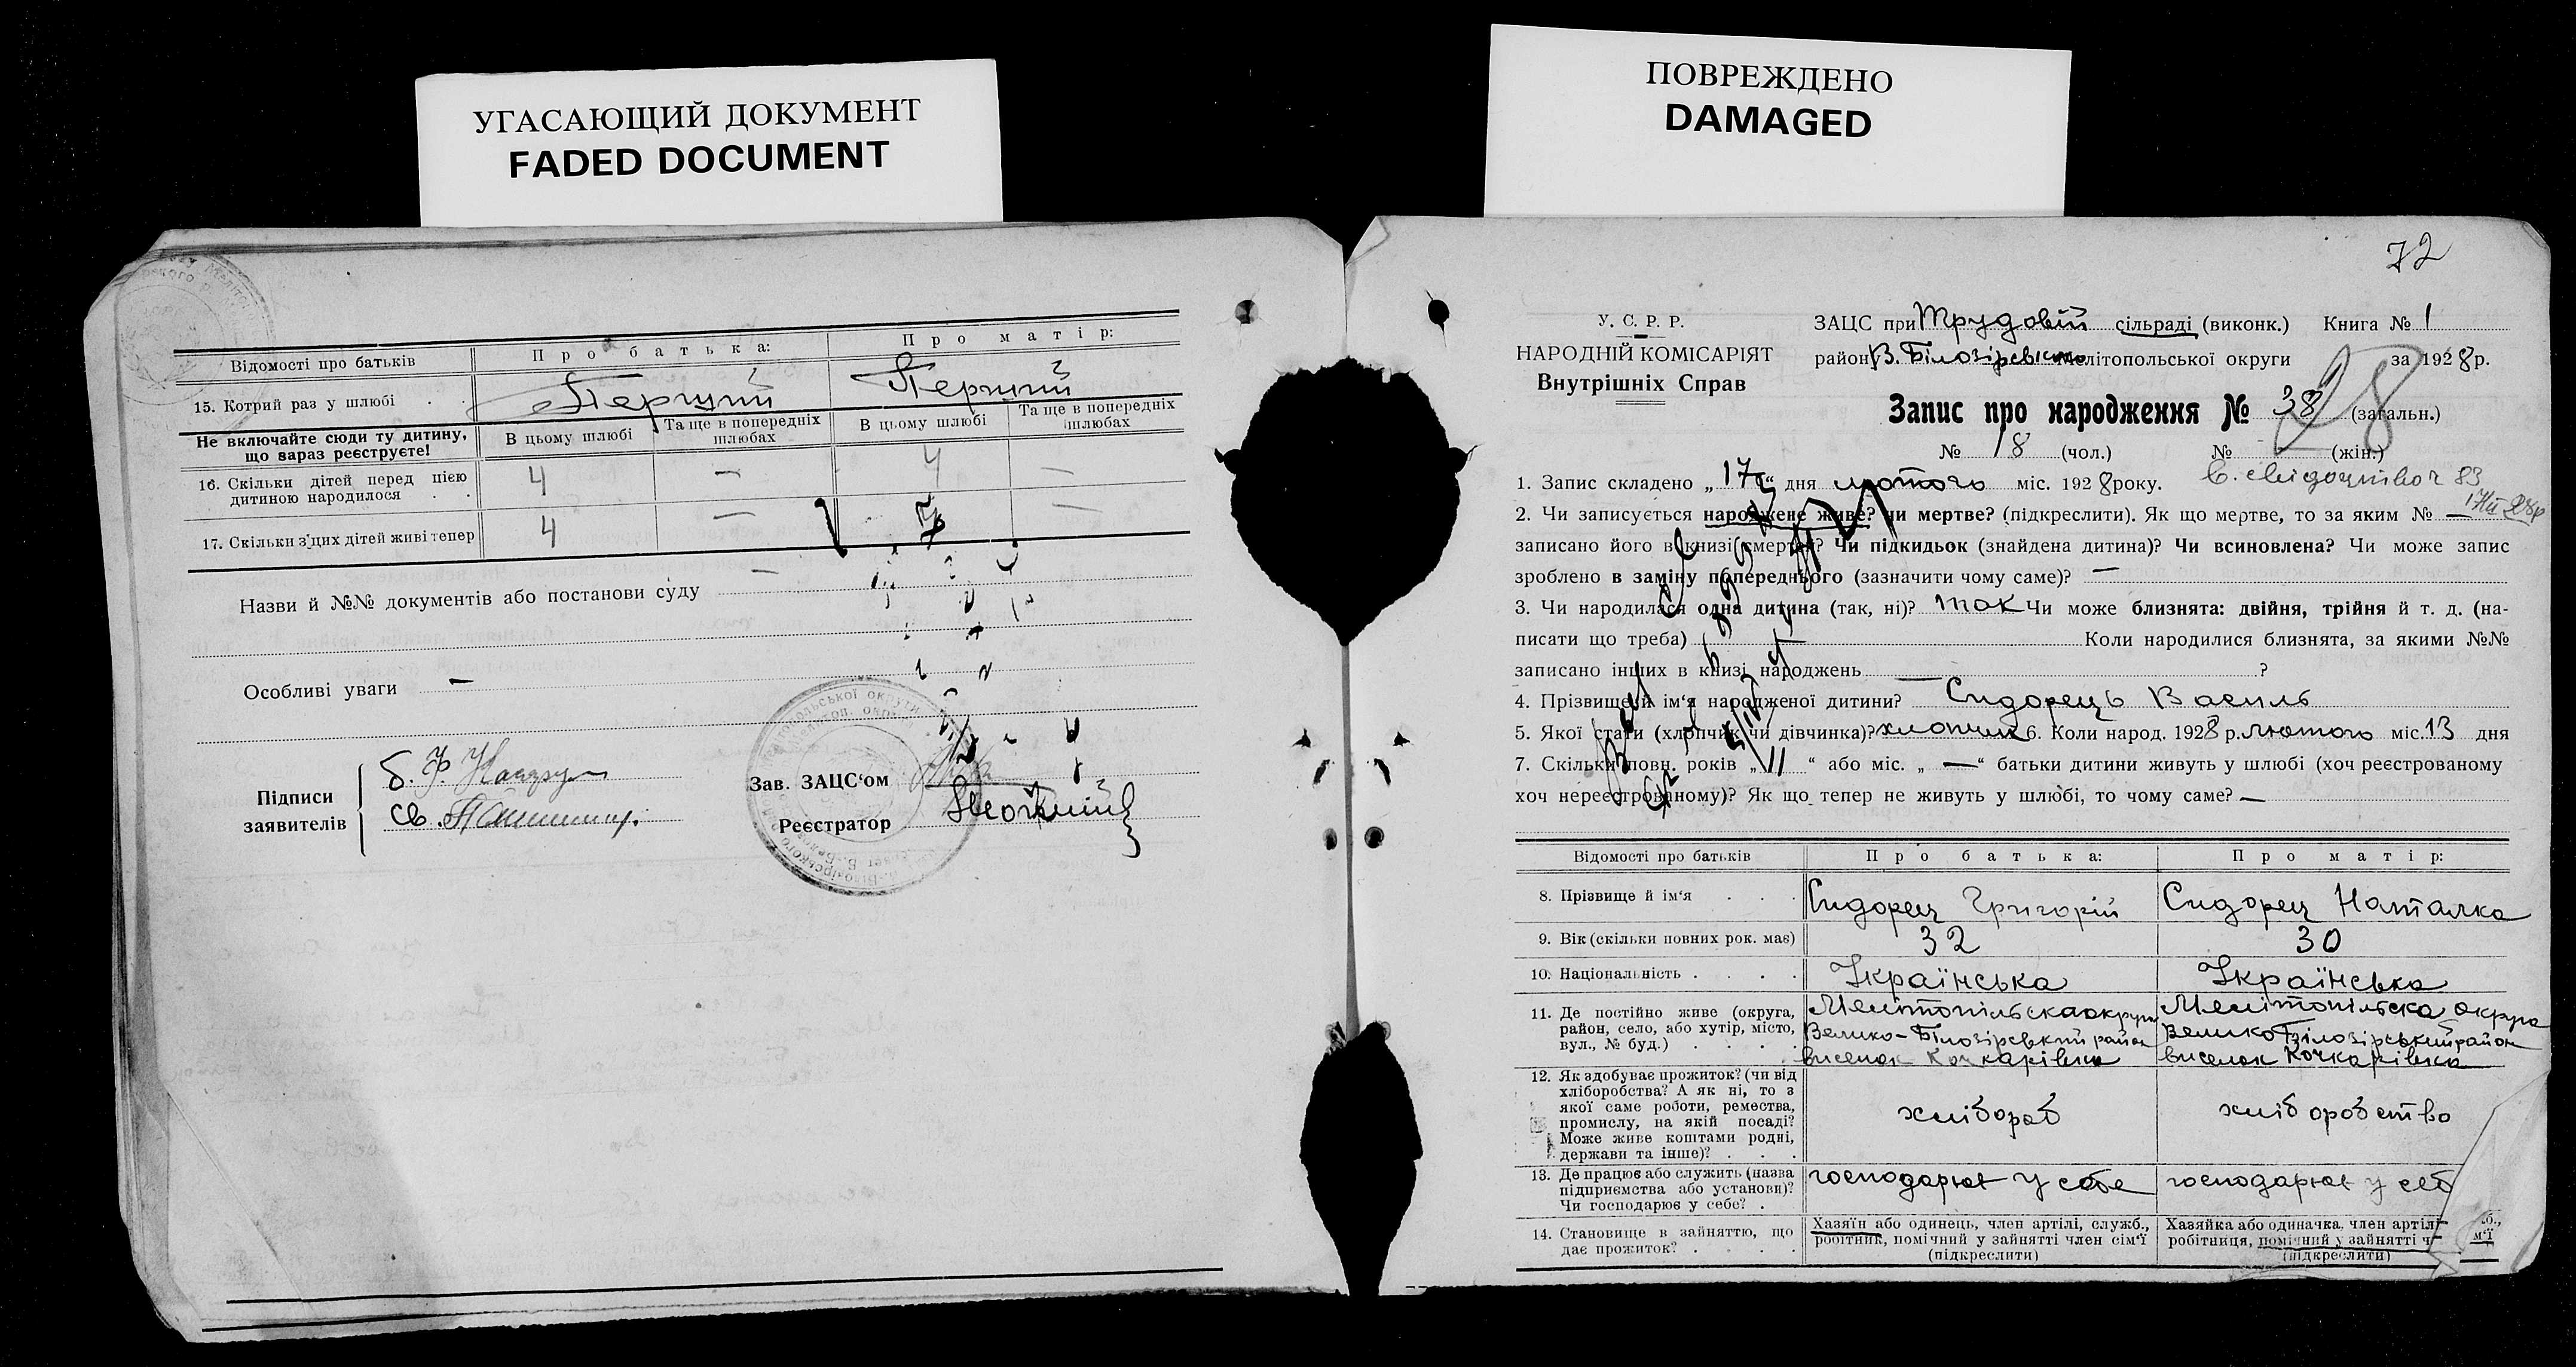 УГАСАЮЩИЙ ДОКУМЕНТ
FADED DOCUMENT
ПОВРЕЖДЕНО
DAMAGED
Відомості про батьків Про батька: Про матір:
15. Котрий раз у шлюбі . . Перший Перший
Не включайте сюди ту дитину, що зараз реєструєте! В цьому шлюбі Та ще в попередніх шлюбах В цьому шлюбі Та ще в попередніх шлюбах
16. Скільки дітей перед цією дитиною народилося . . 4 — 4 —
17. Скільки з'цих дітей живі тепер 4 — —
Назви й №№ документів або постанови суду —
Особливі уваги —
Підписи
заявителів
Зав. ЗАЦС'ом
Реєстратор
72
У. С. Р. Р.
НАРОДНІЙ КОМІСАРІЯТ
Внутрішніх Справ
ЗАЦС при Трудовій сільраді (виконк.) Книга № 1
район В. Білозірський Мелітопольської округи за 1928 р.
Запис про народження № 38 (загальн.) 28
№ 18 (чол.) № (жін.)
1. Запис складено „17“ дня лютого міс. 1928 року.
2. Чи записується народжене живе? чи мертве? (підкреслити). Як що мертве, то за яким № —
записано його в книзі смертей? Чи підкидьок (знайдена дитина)? Чи всиновлена? Чи може запис
зроблено в заміну попереднього (зазначити чому саме)? —
3. Чи народилася одна дитина (так, ні)? так Чи може близнята: двійня, трійня й т. д. (на-
писати що треба) Коли народилися близнята, за якими №№
записано інших в книзі народжень — ?
4. Прізвище й ім'я народженої дитини? Сидорець Василь
5. Якої стати (хлопчик чи дівчинка)? хлопчик 6. Коли народ. 1928 р. лютого міс. 13 дня
7. Скільки повн. років „11“ або міс. „—“ батьки дитини живуть у шлюбі (хоч реєстрованому
хоч нереєстрованому)? Як що тепер не живуть у шлюбі, то чому саме? —
Відомості про батьків Про батька: Про матір:
8. Прізвище й ім'я . . . Сидорец Григорій Сидорец Наталка
9. Вік (скільки повних рок. має) 32 30
10. Національність . . . . Українська Українська
11. Де постійно живе (округа, район, село, або хутір, місто, вул., № буд.) . . . . Мелітопільска округа Велико-Білозірський район виселок Кочкарівка Мелітопільска округа Велико Білозірський район виселок Кочкарівка
12. Як здобуває прожиток? (чи від хліборобства? А як ні, то з якої саме роботи, ремества, промислу, на якій посаді? Може живе коштами родні, держави та інше)? . . . хлібороб хліборобство
13. Де працює або служить (назва підприємства або установи)? Чи господарює у себе? . господарює у себе господарює у себ
14. Становище в зайняттю, що дає прожиток? . . . . Хазяїн або одинець, член артілі, служб., робітник, помічний у зайнятті член сім'ї (підкреслити) Хазяйка або одиначка, член артілі б., робітниця, помічний у зайнятті ч м'ї (підкреслити)